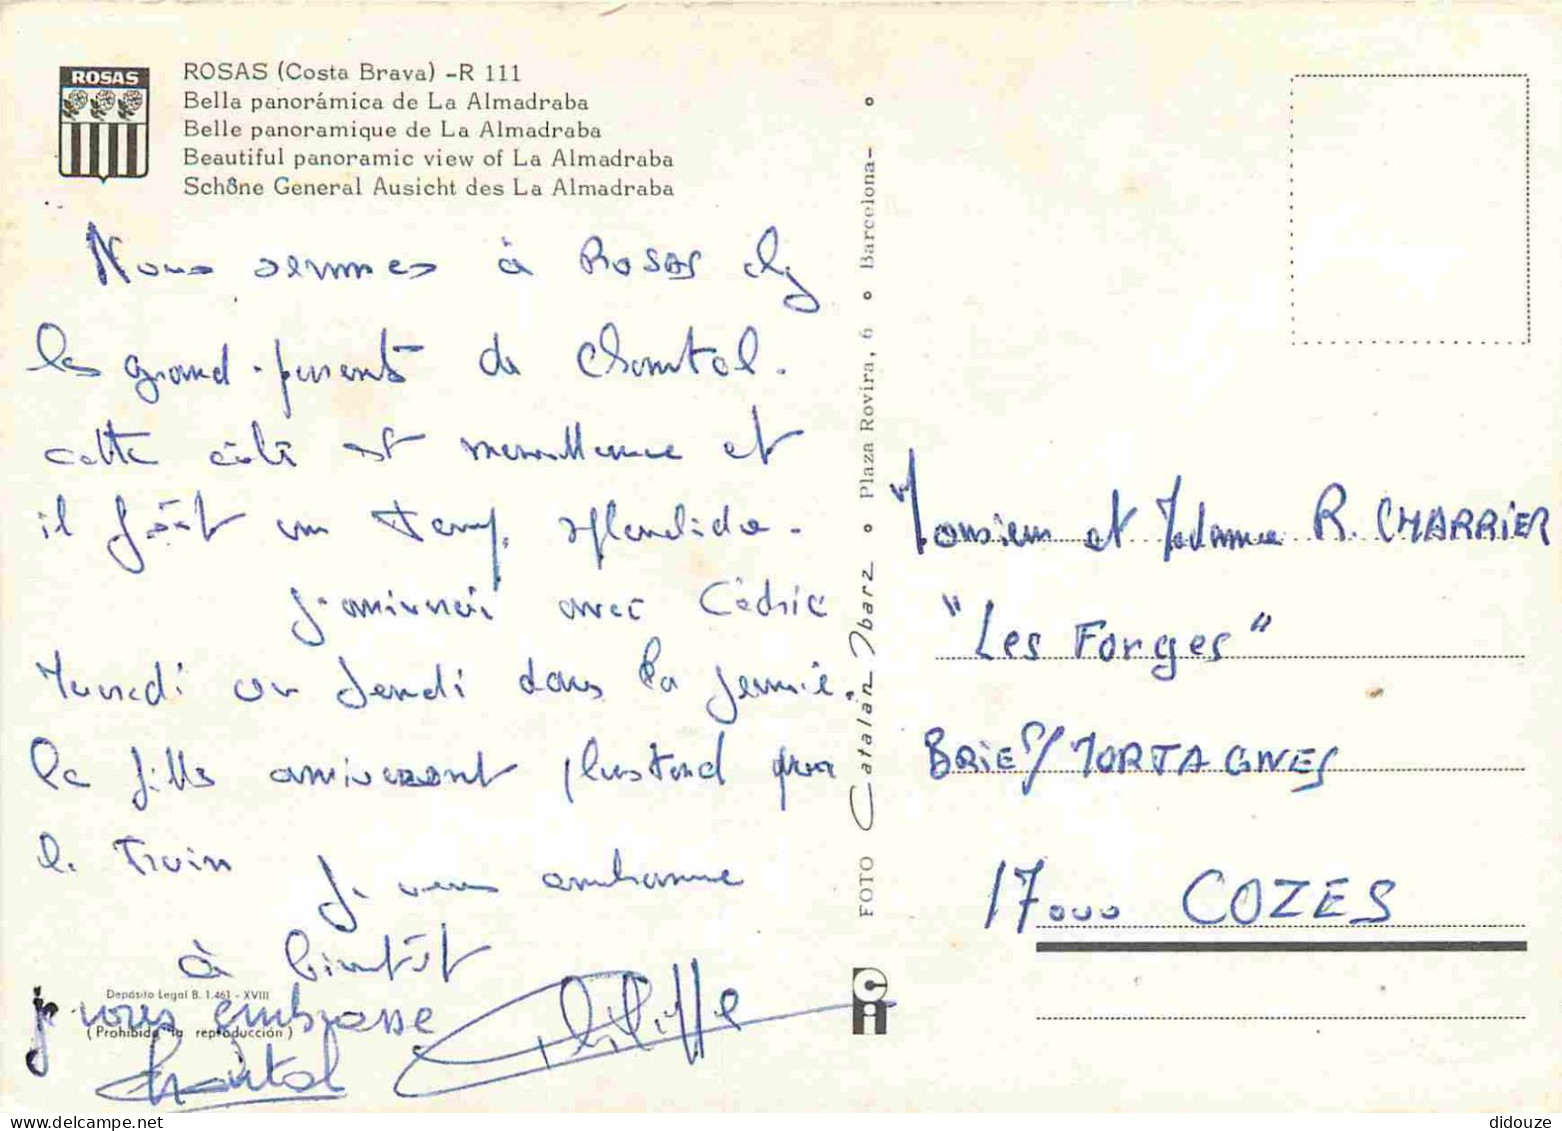 ROSAS
ROSAS (Costa Brava) -R 111
Bella panorámica de La Almadraba
Belle panoramique de La Almadraba
Beautiful panoramic view of La Almadraba
Schöne General Ausicht des La Almadraba
Nous sommes à ROSAS
les grand-parents de Chantal.
cette côté est merveilleuse et
il fait un temps splendide.
J'arriverai avec Cédric
Mercredi ou Jeudi dans la journée.
les filles arriveront plus tard par
le Train
Je vous embrasse
à bientôt
je vous embrasse
Chantal
Philippe
Depósito Legal B. 1.461 - XVIII
(Prohibida la reproducción)
FOTO Catalán Ibarz Plaza Rovira, 6 Barcelona-
Monsieur et Madame R. CHARRIER
"Les Forges"
BRIE S/ MORTAGNES
17000 COZES
didouze